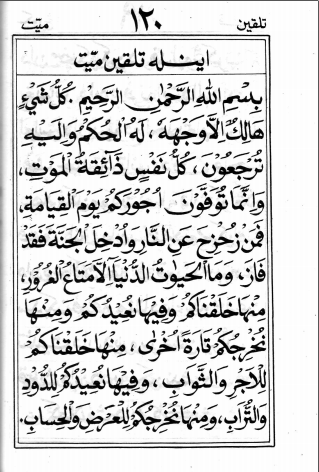 تلقين ١٢٠ ميّت
اينله تلقين ميّت
بِسْمِ اللهِ الرَّحْمٰنِ الرَّحِيْمِ. كُلُّ شَيْءٍ
هَالِكٌ اِلَّا وَجْهَهُ، لَهُ الْحُكْمُ وَاِلَيْهِ
تُرْجَعُوْنَ، كُلُّ نَفْسٍ ذَآئِقَةُ الْمَوْتِ،
وَاِنَّمَا تُوَفَّوْنَ اُجُوْرَكُمْ يَوْمَ الْقِيَامَةِ،
فَمَنْ زُحْزِحَ عَنِ النَّارِ وَاُدْخِلَ الْجَنَّةَ فَقَدْ
فَازَ، وَمَا الْحَيٰوةُ الدُّنْيَا اِلَّا مَتَاعُ الْغُرُوْرِ،
مِنْهَا خَلَقْنَاكُمْ وَفِيْهَا نُعِيْدُكُمْ وَمِنْهَا
نُخْرِجُكُمْ تَارَةً اُخْرٰى، مِنْهَا خَلَقْنَاكُمْ
لِلْاَجْرِ وَالثَّوَابِ، وَفِيْهَا نُعِيْدُكُمْ لِلدُّوْدِ
وَالتُّرَابِ، وَمِنْهَا نُخْرِجُكُمْ لِلْعَرْضِ وَالْحِسَابِ.